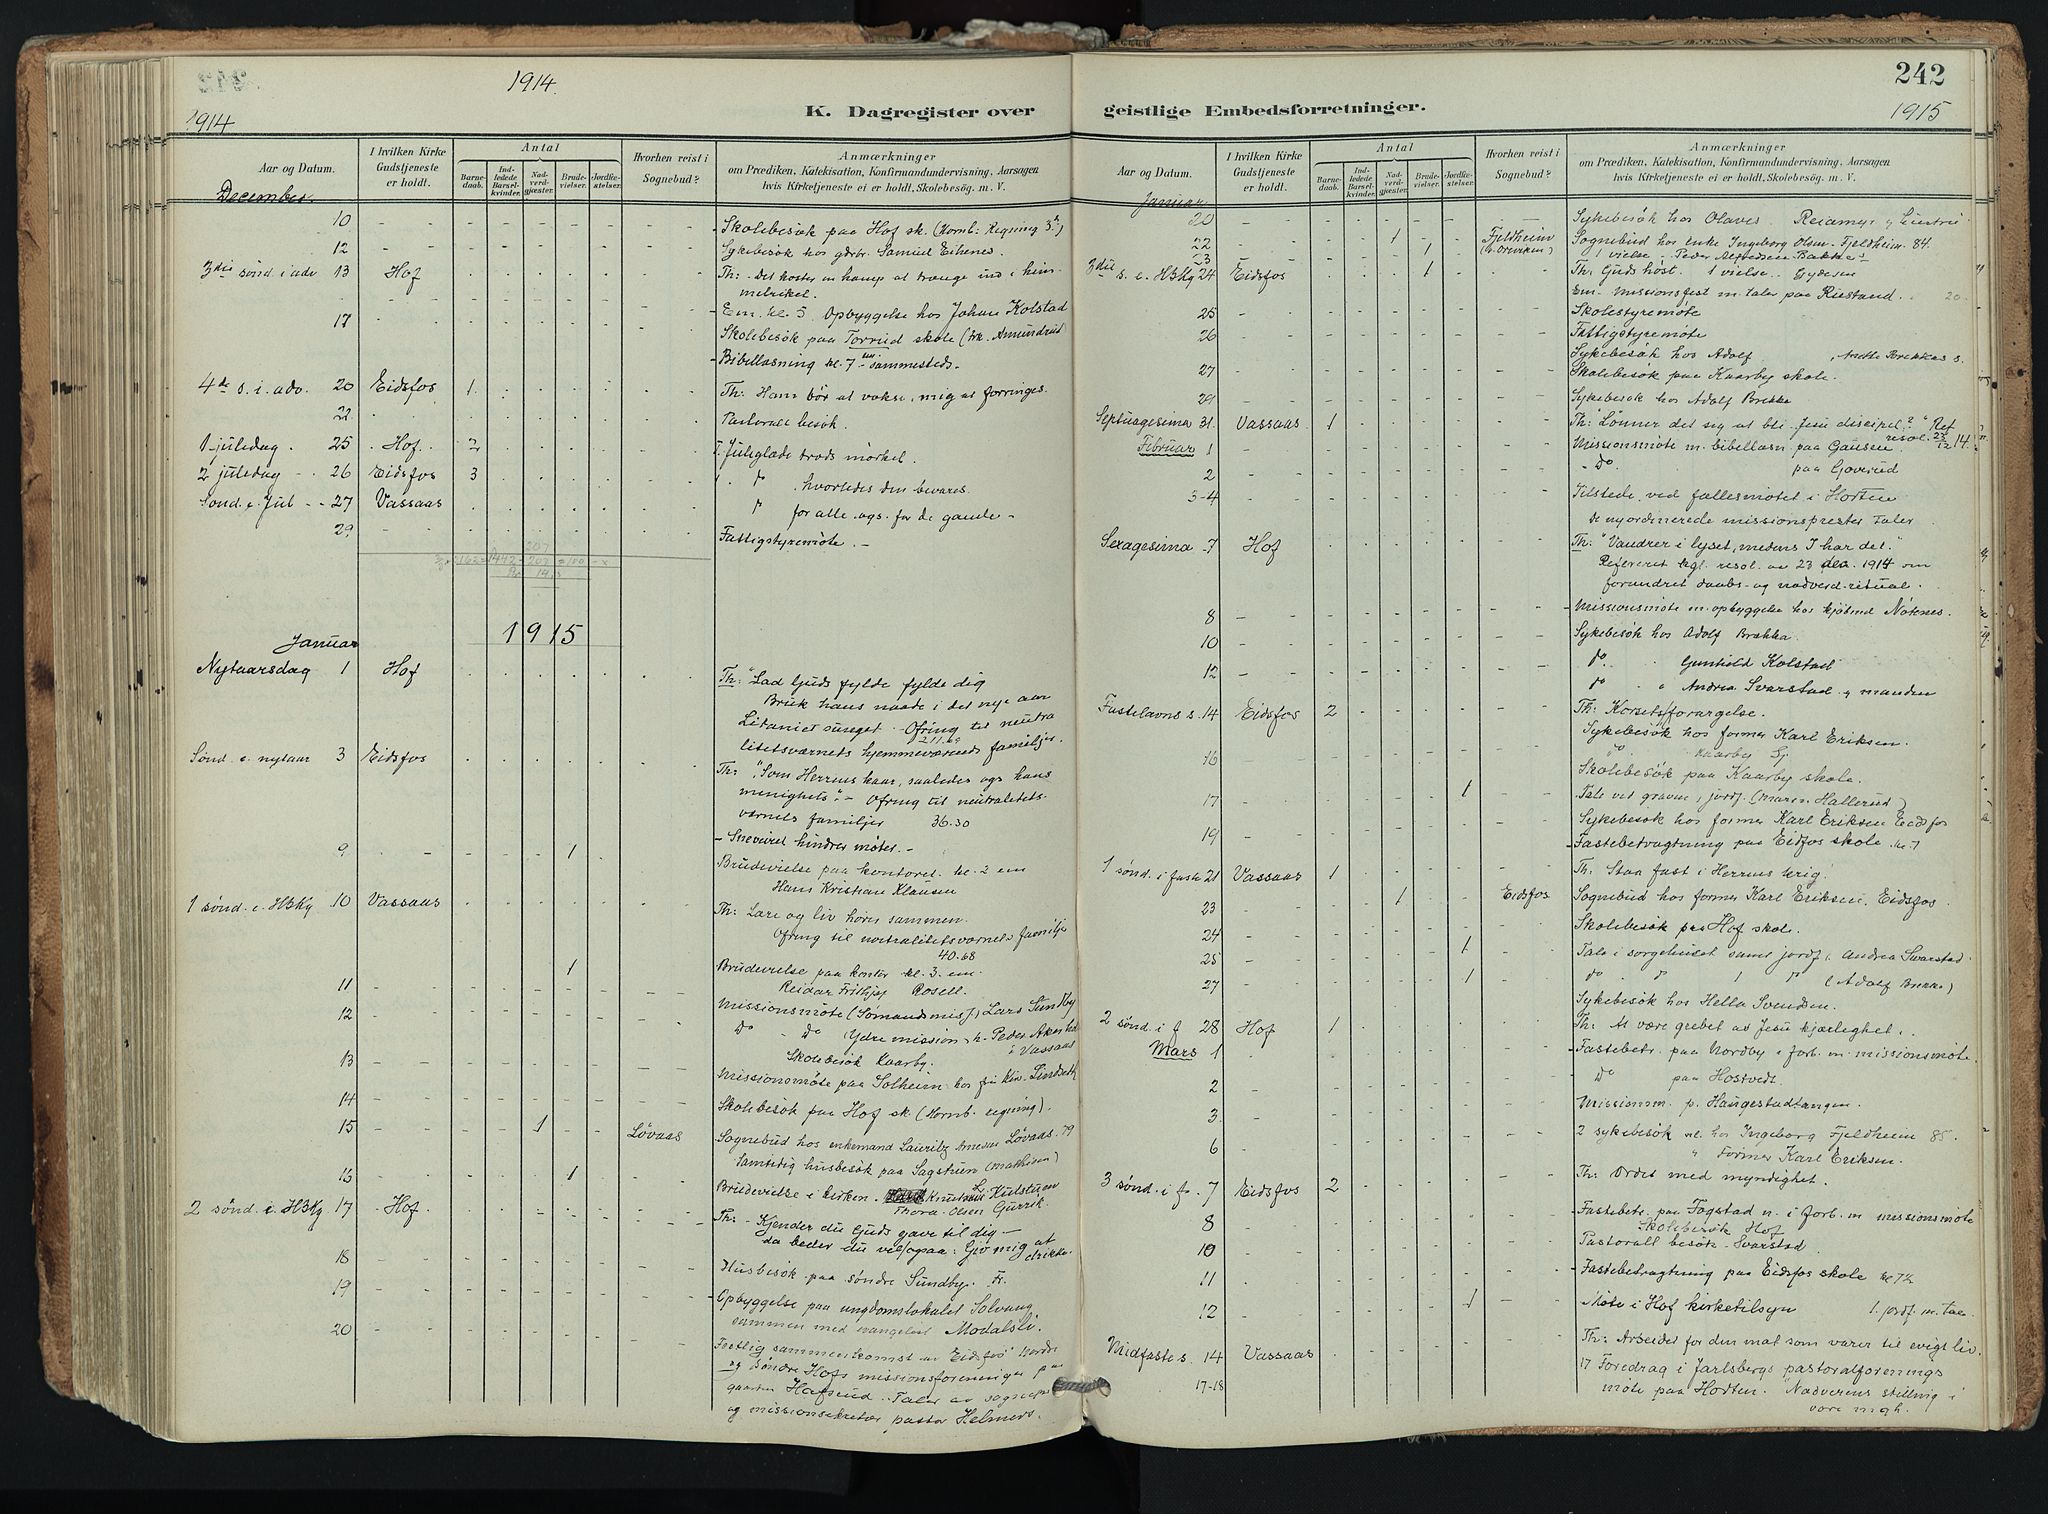 1914
242
K. Dagregister over geistlige Embedsforretninger.
1914
1915
Aar og Datum.
I hvilken Kirke Gudstjeneste er holdt.
Antal
Barnedaab.
Indledede Barselkvinder.
Nadverdgjester.
Brudevielser.
Jordfæstelser.
Hvorhen reist i Sognebud?
Anmærkninger
om Prædiken, Katekisation, Konfirmandundervisning, Aarsagen
hvis Kirketjeneste ei er holdt, Skolebesøg. m. V.
December
10 Skolebesøk paa Hof sk. (Komb: Regning 3
12 Sykebesøk hos gdbr. Samuel
3die sønd. i adv 13 Hof Th: Det koster en kamp at trænge ind i himmelriket.
Em. kl. 5 Opbyggelse hos Johan Kolstad
17 Skolebesøk paa Torrud skole (frk. Amundrud)
Bibellæsning kl. 7 sammesteds.
4de s. i. adv. 20 Eidsfos 1 Th: Ham bør at vokse, mig at forringes.
22 Pastoralt besøk.
1 juledag 25 Hof 2 Th. Juleglæde trods mørket.
2 juledag 26 Eidsfos 3 do hvorledes den bevares.
Sønd. e. Jul 27 Vassaas do for alle ogs. for de gamle
29 Fattigstyremøte.
Januar 1915
Nytaarsdag 1 Hof Th: "Lad Guds fylde fylde dig
Bruk hans naade i det nye aar
Litaniet sunget. Ofring til neutra
litetsværnets hjemmeværende familjer.
Sønd. e. nytaar 3 Eidsfos
Th: "Som Herrens kaar, saaledes ogs hans
menighets". - Ofring til neutralitets-
værnets familjer 36.30
Sneveiret hindrer møtet.
9 1 Brudevielse paa kontoret kl. 2 em
Hans Kristian Klausen
1 sønd. e. H3Kg 10 Vassaas Th: Lære og liv hører sammen.
Ofring til neutralitetsværnets familje
40.68
1 Brudevielse paa kontor kl. 3. em.
Reidar Frithjof Rosell.
11 Missionsmøte (Sømandsmisj) Lars Sundby
12 do do Ydre mission h. Peder
i Vassaas
13 Skolebesøk Kaarby.
Missionsmøte paa Solheim hos fru Lindseth
14 Skolebesøk paa Hof sk (Komb. regning).
15 1 Løvaas Sognebud hos enkemand Lauritz Løvaas. 79
Samtidig husbesøk paa Sagstuen (Mathisen)
16 1 Brudevielse i kirken. Knut Hulstuen
Thora Olsen
2 sønd. e. H3Kg 17 Hof Th: - Kjender du Guds gave til dig -
da beder du vel ogsaa: Giv mig at drikke.
18 Husbesøk paa søndre Sundby.
19 Opbyggelse paa ungdomslokalet Solvang
sammen med evangelist Modalsli.
20 Festlig sammenkomst av Eidsfos Nordre
og Søndre Hofs missionsforeninger paa
gaarden Hafsrud. Taler av sognepr
og missionsekretær pastor Helmers.
Aar og Datum.
I hvilken Kirke Gudstjeneste er holdt.
Antal
Barnedaab.
Indledede Barselkvinder.
Nadverdgjester.
Brudevielser.
Jordfæstelser.
Hvorhen reist i Sognebud?
Anmærkninger
om Prædiken, Katekisation, Konfirmandundervisning, Aarsagen
hvis Kirketjeneste ei er holdt, Skolebesøg. m. V.
Januar
20 Sykebesøk hos Olaves
22 1 Fjeldheim Sognebud hos enke Ingeborg Olsen Fjeldheim 84.
23 1 1 vielse Peder Alfredsen Bakke
3die s. e. H3Kg 24 Eidsfos 1 Th: Guds høst. 1 vielse
Em. Missionsfest m. taler paa Rustand.
25 Skolestyremøte
26 Fattigstyremøte
Sykebesøk hos Adolf
27 Skolebesøk paa Kaarby skole.
29 Sykebesøk hos Adolf Brekke
Septuagesima 31 Vassaas 1 Th: "Lønner det sig at bli Jesu discipel?" Ref
resol. 23/12 14.
Februar 1 Missionsmøte m. bibellæsn paa Gausen
2 Do paa Goverud
3-4 Tilstede ved fællesmøtet i Horten
De nyordinerede missionsprester taler
Sexagesima 7 Hof Th: "Vandrer i lyset, medens I har det."
Refereret kgl. resol. av 23 des. 1914 om
forandret daabs- og nadverd-ritual.
8 Missionsmøte m. opbyggelse hos kjøbmd Nøtenes.
10 Sykebesøk hos Adolf Brekka.
do Gunhild Kolstad
12 do Andrea Svarstad og manden
Fastelavns s. 14 Eidsfos 2 Th: Korsets forargelse.
Sykebesøk hos former Karl Eriksen.
16 do Kaarby
Skolebesøk paa Kaarby skole.
17 1 Tale ved graven, jordf. (Maren Hallerud)
Sykebesøk hos former Karl Eriksen Eidsfos
19 Fastebetragtning paa Eidsfos skole kl. 7
1 sønd. i faste 21 Vassaas 1 Th: Staa fast i Herrens krig!
23 1 Eidsfos Sognebud hos former Karl Eriksen, Eidsfos
24 Skolebesøk paa Hof skole.
25 1 Tale i sorgehuset samt jordf. Andrea Svarstad
27 1 do (Adolf Brekke)
Sykebesøk hos Hella Svendsen.
2 sønd. i f 28 Hof 1 Th: At være grebet av Jesu kjærlighet.
Mars 1 Fastebetr. paa Nordby i forb. m. missionsmøte.
2 Do paa Hostvedt.
3. Missionsm. p. Haugestadtangen.
6 2 sykebesøk hos Ingeborg Fjeldheim 85.
" former Karl Eriksen.
3 sønd. i fa. 7 Eidsfos 2 Th: Ordet med myndighet.
8 Fastebetr. paa Fogstad n. i forb. m missionsmøte
Skolebesøk Hof
10 Pastoralt besøk Svarstad.
11 Fastebetragtning paa Eidsfos skole kl 7½
12 1 Møte i Hof kirketilsyn 1. jordf. m. tale
Midfaste s. 14 Vassaas Th: Arbeider for den mat som varer til evigt liv.
17-18 17 Foredrag i Jarlsbergs pastoralforenings
møte paa Horten. "Nadverens stilling i
vore mgh.